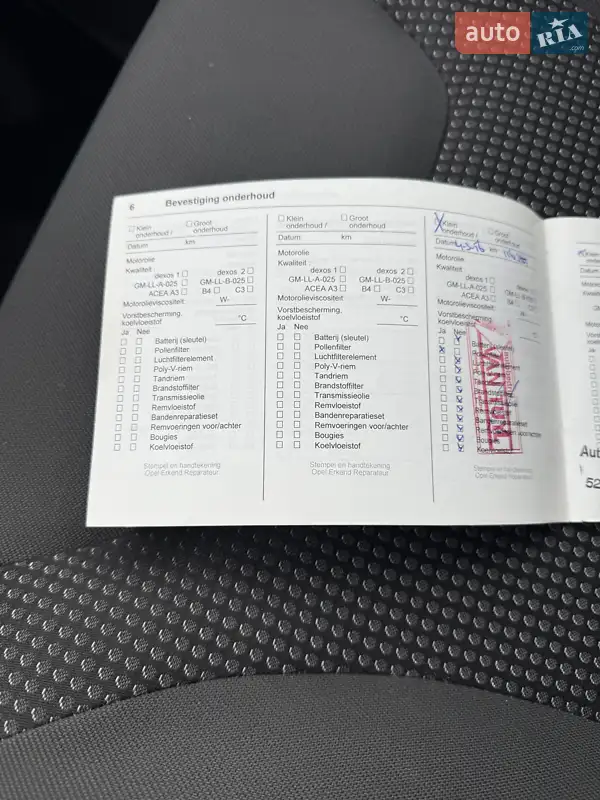 auto RIA .com
6 Bevestiging onderhoud
Klein onderhoud / Groot onderhoud
Datum km
Motorolie
Kwaliteit :
dexos 1 dexos 2
GM-LL-A-025 GM-LL-B-025
ACEA A3 B4 C3
Motorolieviscositeit: W-
Vorstbescherming,
koelvloeistof °C
Ja Nee
Batterij (sleutel)
Pollenfilter
Luchtfilterelement
Poly-V-riem
Tandriem
Brandstoffilter
Transmissieolie
Remvloeistof
Bandenreparatieset
Remvoeringen voor/achter
Bougies
Koelvloeistof
Stempel en handtekening
Opel Erkend Reparateur
Klein onderhoud / Groot onderhoud
Datum: km
Motorolie
Kwaliteit :
dexos 1 dexos 2
GM-LL-A-025 GM-LL-B-025
ACEA A3 B4 C3
Motorolieviscositeit: W-
Vorstbescherming,
koelvloeistof °C
Ja Nee
Batterij (sleutel)
Pollenfilter
Luchtfilterelement
Poly-V-riem
Tandriem
Brandstoffilter
Transmissieolie
Remvloeistof
Bandenreparatieset
Remvoeringen voor/achter
Bougies
Koelvloeistof
Stempel en handtekening
Opel Erkend Reparateur
Klein onderhoud / Groot onderhoud
Datum km
Motorolie
Kwaliteit :
dexos 1
GM-LL-A-025 GM-LL-B-025
ACEA A3
Motorolieviscositeit:
Vorstbescherming,
koelvloeistof
Ja Nee
Remvoeringen voor/achter
Stempel en handtekening
Opel Erkend Reparateur
Aut
52